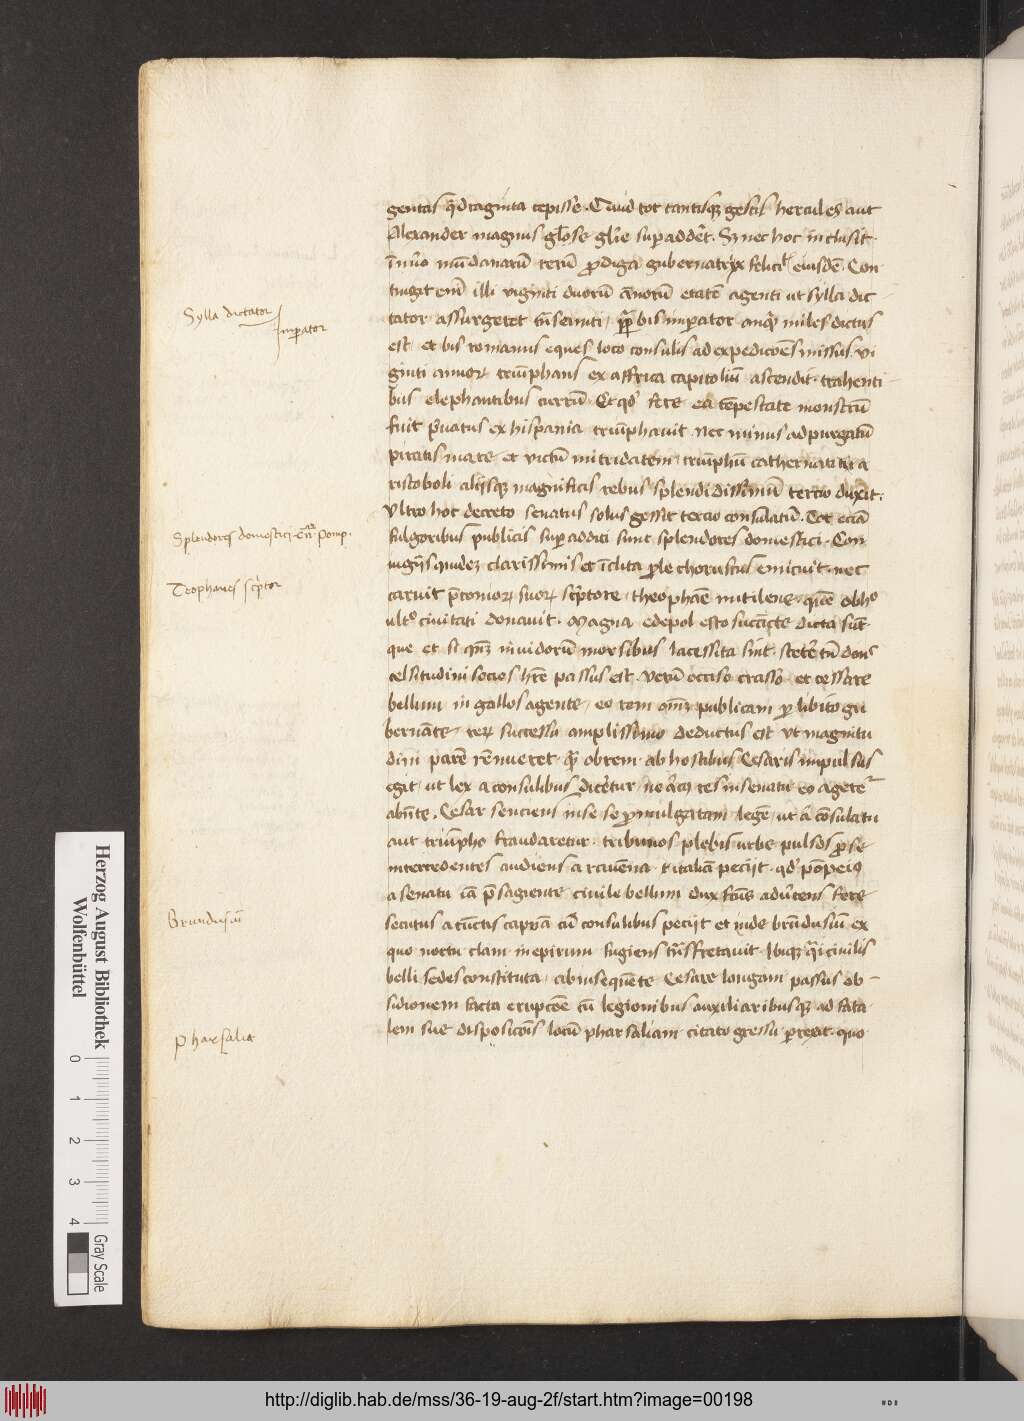 gentas q̄draginta cepisse. Quid tot tantisqꝫ gestis hercules aut
Alexander magnus gl̄ose gl̄ie supaddēt. Sꝫ nec hoc inclusit.
mūdanarū rerū prodiga gubernatrix felicit eiusdē. Con
tingit em̄ illi viginti duorū annorū etatē agenti ut sylla dic
tator assurgeret bis imperator anq̄ miles dictus
est et bis romanus eques loco consulis ad expedicōes missus. vi
ginti annoꝝ triūphans ex affrica capitoliū ascendit. trahenti
bus elephantibus currū. Et qd' fere ea tēpestate monstrū
fuit p̄uatus ex hispania triūphavit. nec minus ad purgatū
piratis mare et victū mitridatem triūphū a
ristoboli alijsqꝫ magnificis rebus splendidissimū tercio duxit.
Vltro hoc decreto senatus solus gessit tercio consulatū. Tot eciā
fulgoribus publicis supadditi sunt splendores domestici. Con
iugijs quidez clarissimis et īclita ple chorustus emicuit. nec
caruit p̄coniorꝝ suorꝝ sc̄ptore theophāe mitilene quē obhꝰ
ultꝰ civitati donavit. Magna edepol esto succīcte dicta sūt
que et si qmꝫ invidorū morsibus lacessita sint. stetēt tn̄ donꝰ
celsitudini socios hr̄e passus est. verū occiso crasso et cessare
bellum in gallos agente eo rem qmꝫ publicam p libito gu
bernāte rerꝝ successu amplissimo deductus est vt magnitu
dini parē rēnueret. qr̄ ob rem ab hostibus Cesaris impulsus
egit ut lex a consulibus diceretur ne res in senatu eo agerēt
abn̄te. Cesar senciens in se se promulgatam legē ut a cōsulatu
aut triūpho fraudaretur. tribunos plebis urbe pulsos pro se
intercedentes audiens a ravēna italiā pecijt. qd' pōpeiꝰ
a senatu iā p̄sagiente civile bellum dux fcūs adv̄tens fere
secutus a cūctis capuā cū consulibus pecijt et inde brūdusiū ex
quo noctu clam in epirum fugiens trn̄sfretavit. Ibiqꝫ civilis
belli sedes constituta ab insequēte Cesare longam passus ob
sidionem facta erupcōe cū legionibus auxiliaribusqꝫ ad fata
lem sue disposicōis locū pharsaliam citato gressu prexit. quo
Sylla dictator
Imperator
Splendores domestici Pomp.
Teophanes sc̄ptor
Brundusiū
Pharsalia
Herzog August Bibliothek
Wolfenbüttel
0 1 2 3 4
Gray Scale
http://diglib.hab.de/mss/36-19-aug-2f/start.htm?image=00198